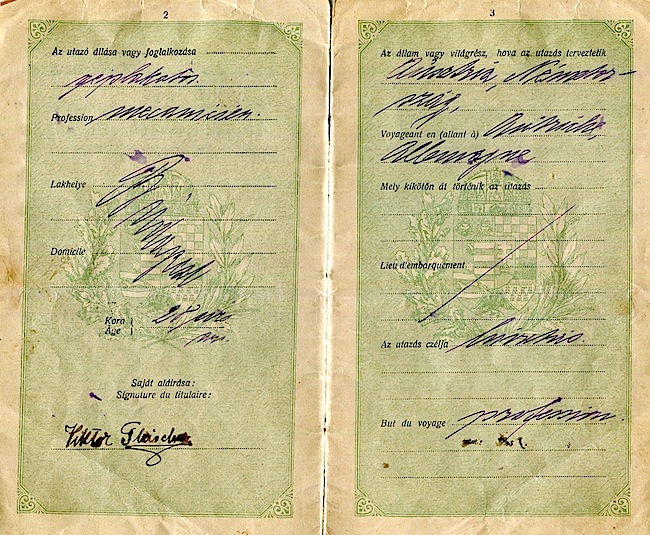 2
Az utazó állása vagy foglalkozása
géplakatos.
Profession mecanicien.
Lakhelye
Domicile
Kora
Age
Saját aláirása:
Signature du titulaire:
Viktor Fleischer
3
Az állam vagy világrész, hova az utazás terveztetik
Ausztria, Németor-
szág,
Voyageant en (allant à) Autriche,
Allemagne
Mely kikötőn át történik az utazás
Lieu d'embarquement
Az utazás czélja
But du voyage profession.